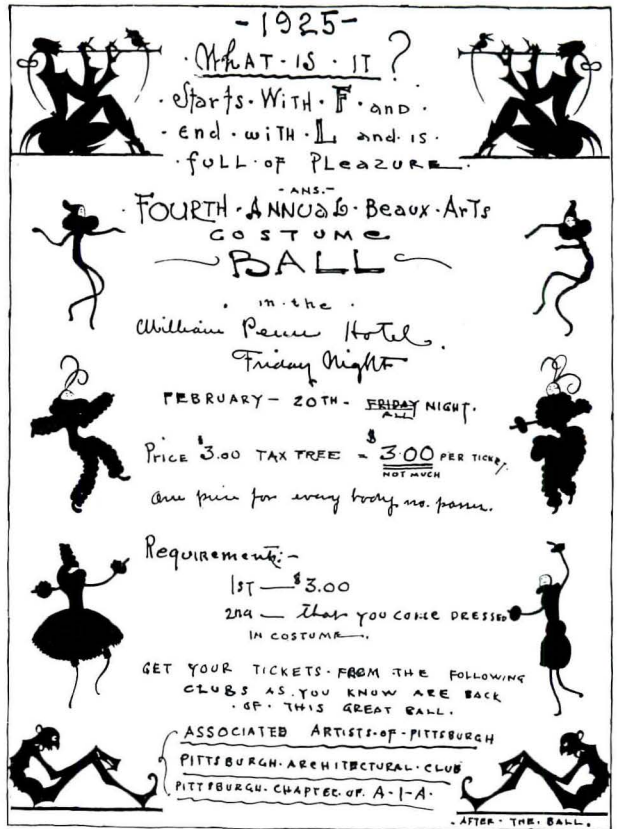 -1925-
·WHAT·IS·IT?
·Starts·WITH·F·AND·
·End·with·L and·is·
·full·of PLEAZURE·
-ANS.-
·FOURTH·ANNUAL·Beaux·Arts
COSTUME
BALL
·in·the·
William Penn Hotel.
Friday Night
FEBRUARY - 20TH - FRIDAY NIGHT.
ALL
Price $3.00 TAX FREE = $3.00 PER TICKET.
NOT MUCH
One price for every body no passes.
Requirements:-
1ST — $3.00
2nd — that you come DRESSED
IN COSTUME.
GET YOUR TICKETS·FROM THE FOLLOWING
CLUBS AS YOU KNOW ARE BACK
·OF·THIS GREAT BALL.
ASSOCIATED ARTISTS·OF·PITTSBURGH
PITTSBURGH·ARCHITECTURAL·CLUB
PITTSBURGH·CHAPTER·OF·A·I·A·
·AFTER·THE·BALL.